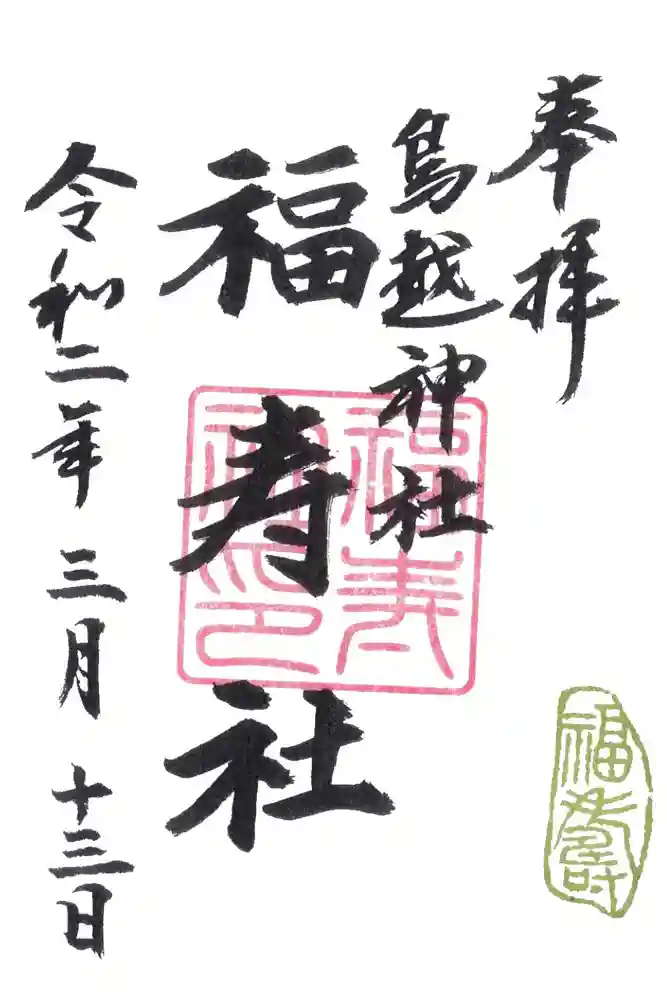 奉拝
鳥越神社
福寿社
令和二年 三月 十三日
福寿